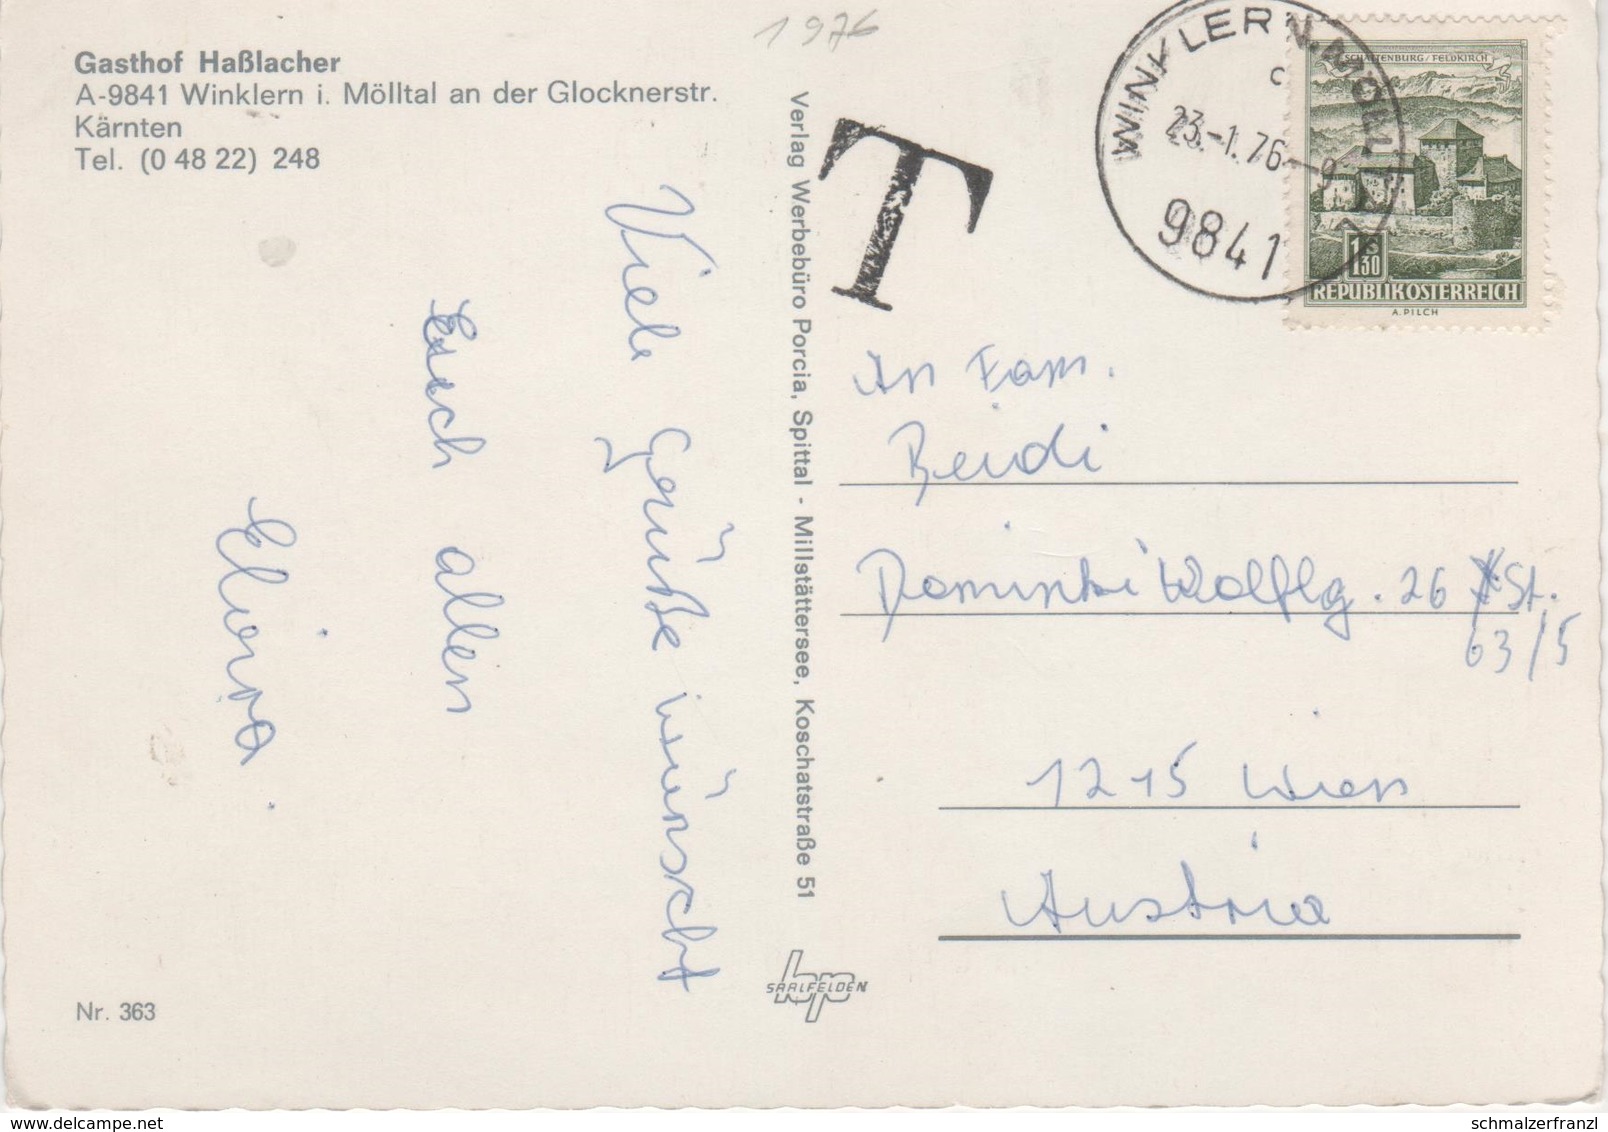 1976
Gasthof Haßlacher
A-9841 Winklern i. Mölltal an der Glocknerstr.
Kärnten
Tel. (0 48 22) 248
Viele Grüße wünscht
Euch allen
Elvira.
Nr. 363
Verlag Werbebüro Porcia, Spittal - Millstättersee, Koschatstraße 51
SAALFELDEN
T
WINKLERN, MÖLLTAL
c
23.-1.76-9
9841
SCHATTENBURG/FELDKIRCH
S
1.30
REPUBLIK ÖSTERREICH
A. PILCH
An Fam.
Dominik Wolflg. 26 St.
63/5
1215 Wien
Austria
www.delcampe.net
schmalzerfranzl